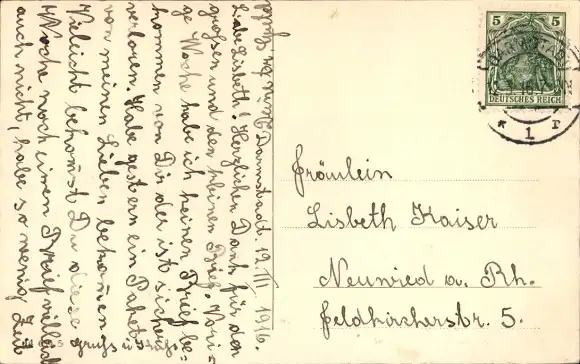 Darmstadt. 12. III 1916.
Liebe Lisbeth! Herzlichen Dank für den
großen und den kleinen Brief. Vori-
ge Woche habe ich keinen Brief be-
kommen von Dir der ist sicher
verloren. Habe gestern ein Paket
von meinen Lieben bekommen
Vieleicht bekomst Du diese
Woche noch einen Brief vielleicht
auch nicht, habe so wenig Zeit
Gruß u. Kuß
5 5
DEUTSCHES REICH
DARMSTADT
* 1 r
Fräulein
Lisbeth Kaiser
Neuwied a. Rh.
Feldkircherstr. 5.